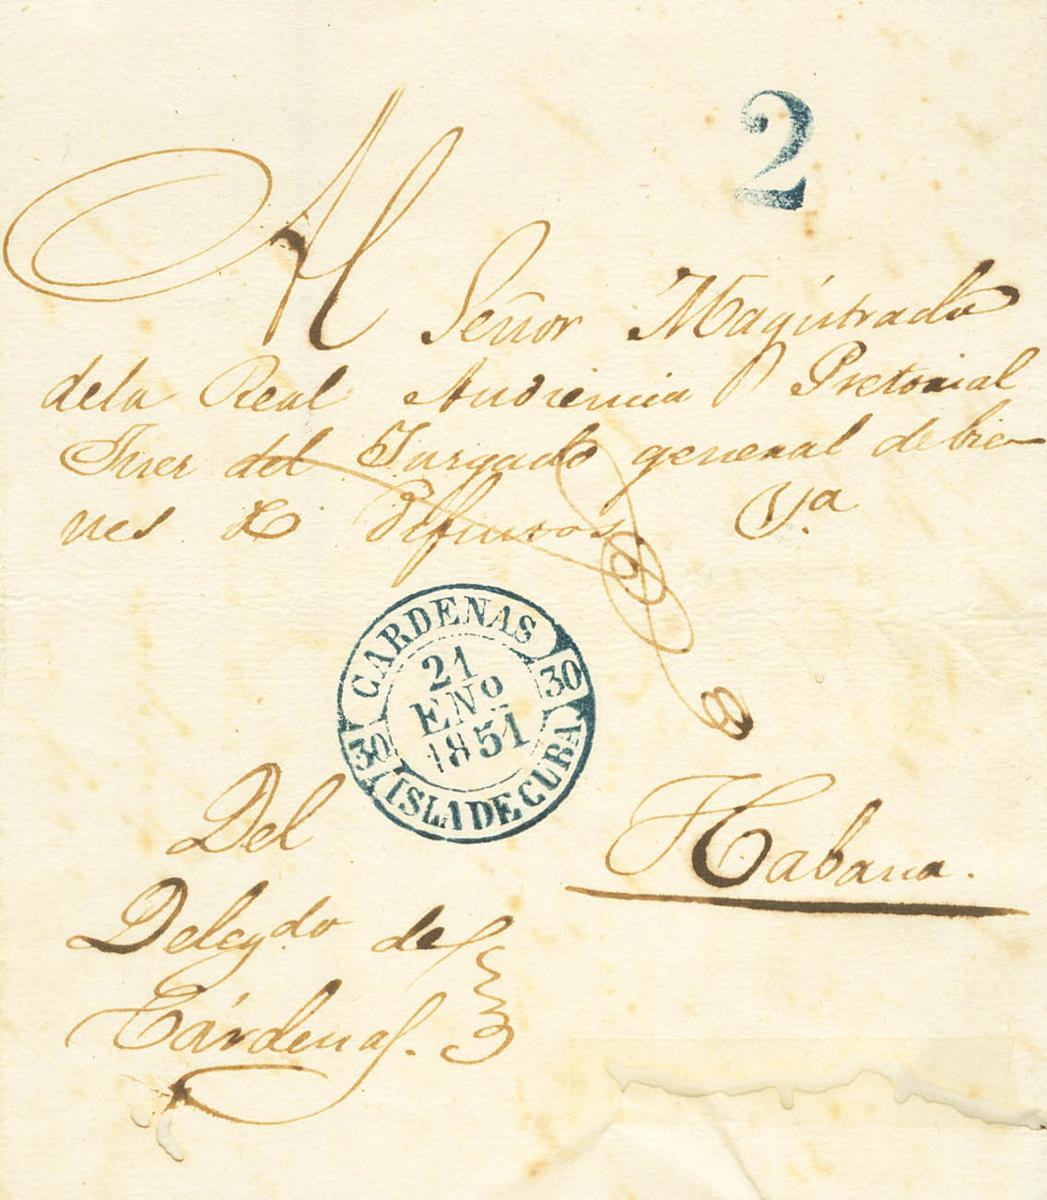 2
Al Señor Magistrado
dela Real Audiencia Pretorial
Juez del Juzgado general de bie-
nes de Difuntos. Ya
CARDENAS
21
ENº
1851
30
30
ISLA DE CUBA
Habana.
Del
Delegdo de
Cárdenas.